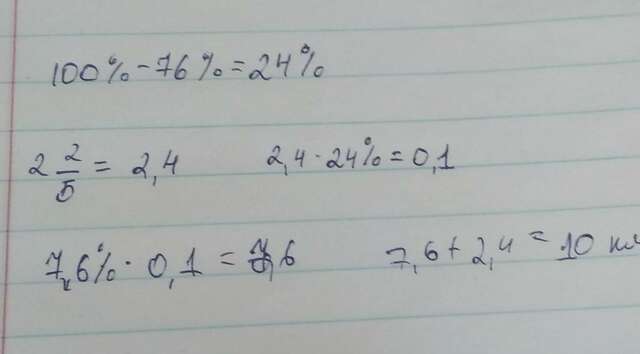 100% - 76% = 24%
2 2/5 = 2,4 2,4 · 24% = 0,1
76% · 0,1 = 7,6 7,6 + 2,4 = 10 км